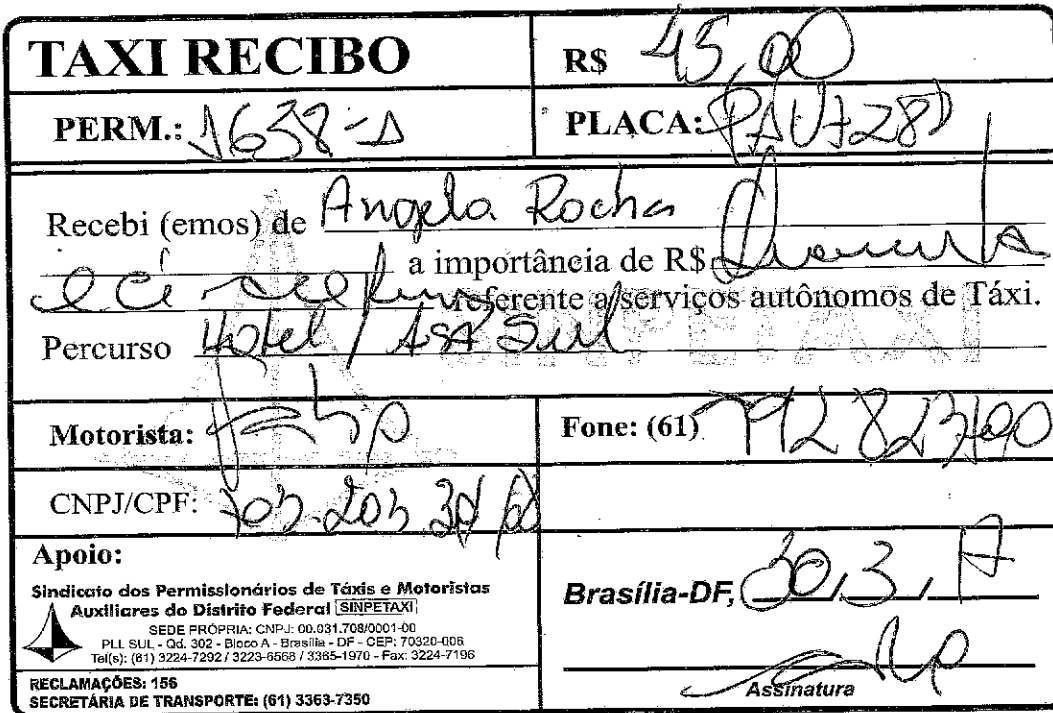 TAXI RECIBO
R$ 45,00
PERM.: 1638-1
PLACA:
Recebi (emos) de Angela Rocha
a importância de R$ Quarenta
e Cinco referente a serviços autônomos de Táxi.
Percurso Hotel / ASA Sul
Motorista:
Fone: (61)
CNPJ/CPF:
Apoio:
Sindicato dos Permissionários de Táxis e Motoristas
Auxiliares do Distrito Federal SINPETAXI
SEDE PRÓPRIA: CNPJ: 00.031.708/0001-00
PLL SUL - Qd. 302 - Bloco A - Brasília - DF - CEP: 70320-006
Tel(s): (61) 3224-7292 / 3223-6566 / 3365-1970 - Fax: 3224-7196
RECLAMAÇÕES: 156
SECRETÁRIA DE TRANSPORTE: (61) 3363-7350
Brasília-DF, 30, 3, 17
Assinatura